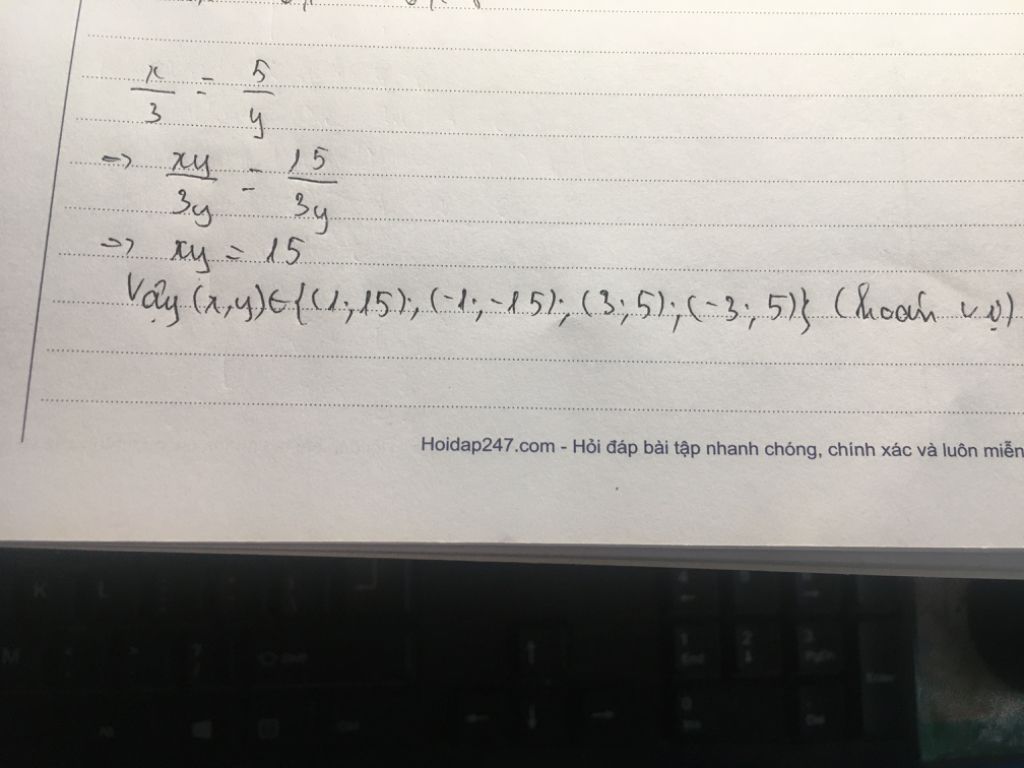 x/3 = 5/y
=> xy/3y = 15/3y
=> xy = 15
Vậy (x,y)∈{(1;15);(-1;-15);(3;5);(-3;5)} (hoán vị)
Hoidap247.com - Hỏi đáp bài tập nhanh chóng, chính xác và luôn miễn